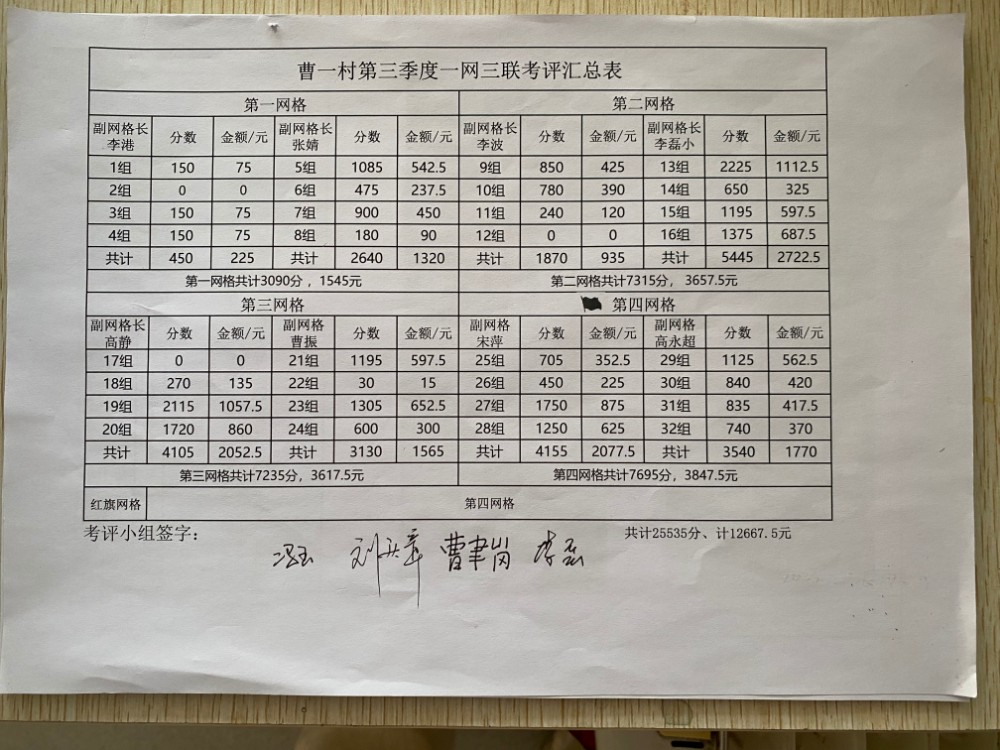 曹一村第三季度一网三联考评汇总表
第一网格 第二网格
副网格长李港 分数 金额/元 副网格长张婧 分数 金额/元 副网格长李波 分数 金额/元 副网格长李磊小 分数 金额/元
1组 150 75 5组 1085 542.5 9组 850 425 13组 2225 1112.5
2组 0 0 6组 475 237.5 10组 780 390 14组 650 325
3组 150 75 7组 900 450 11组 240 120 15组 1195 597.5
4组 150 75 8组 180 90 12组 0 0 16组 1375 687.5
共计 450 225 共计 2640 1320 共计 1870 935 共计 5445 2722.5
第一网格共计3090分，1545元 第二网格共计7315分，3657.5元
第三网格 第四网格
副网格长高静 分数 金额/元 副网格曹振 分数 金额/元 副网格宋萍 分数 金额/元 副网格高永超 分数 金额/元
17组 0 0 21组 1195 597.5 25组 705 352.5 29组 1125 562.5
18组 270 135 22组 30 15 26组 450 225 30组 840 420
19组 2115 1057.5 23组 1305 652.5 27组 1750 875 31组 835 417.5
20组 1720 860 24组 600 300 28组 1250 625 32组 740 370
共计 4105 2052.5 共计 3130 1565 共计 4155 2077.5 共计 3540 1770
第三网格共计7235分，3617.5元 第四网格共计7695分，3847.5元
红旗网格 第四网格
考评小组签字： 共计25535分、计12667.5元
曹聿岗 李磊